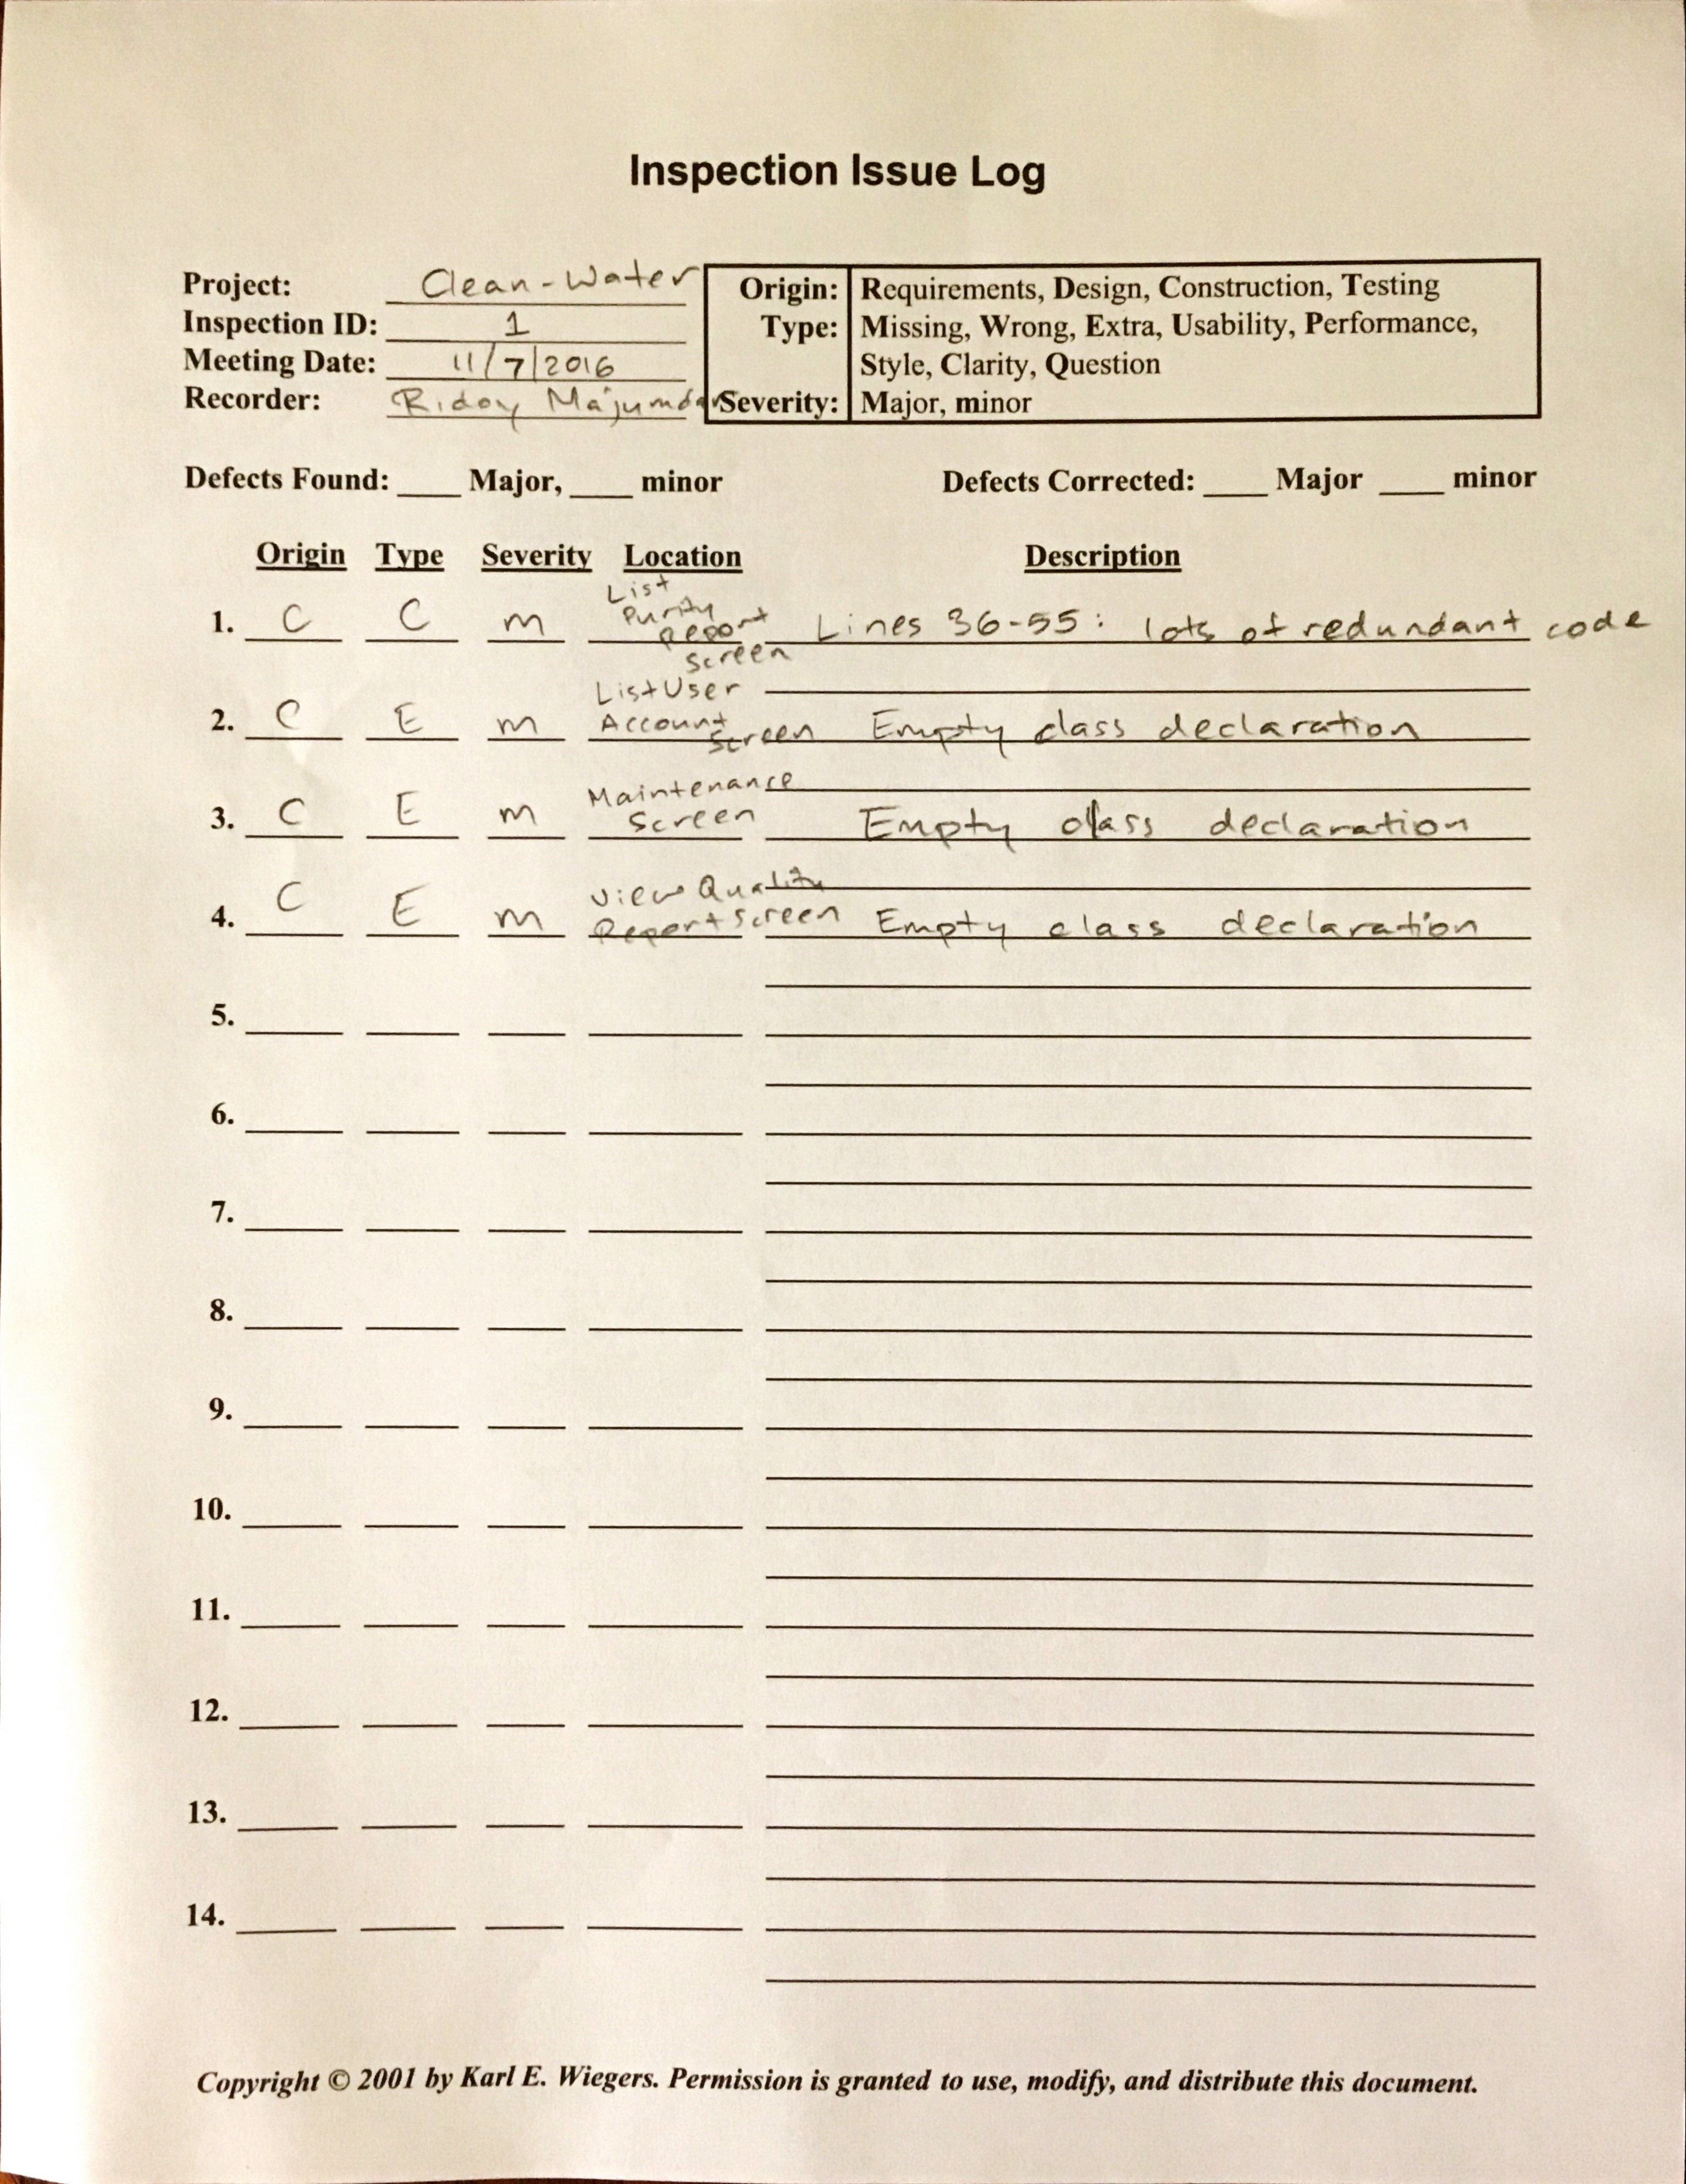 Inspection Issue Log
Project: Clean-Water
Inspection ID: 1
Meeting Date: 11/7/2016
Recorder: Ridoy Majumdar
Origin: Requirements, Design, Construction, Testing
Type: Missing, Wrong, Extra, Usability, Performance,
Style, Clarity, Question
Severity: Major, minor
Defects Found: ____ Major, ____ minor Defects Corrected: ____ Major ____ minor
Origin Type Severity Location Description
1. C C m List Purity Report Screen Lines 36-55: lots of redundant code
2. C E m ListUser Account Screen Empty class declaration
3. C E m Maintenance Screen Empty class declaration
4. C E m View Quality Report Screen Empty class declaration
5.
6.
7.
8.
9.
10.
11.
12.
13.
14.
Copyright © 2001 by Karl E. Wiegers. Permission is granted to use, modify, and distribute this document.